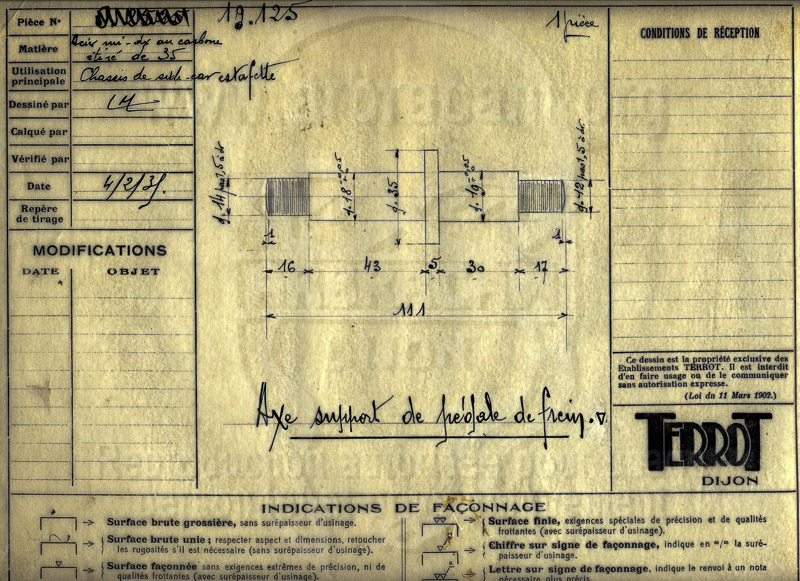 Pièce N° 19.125
1 pièce
Matière Acier mi-dx au carbone
étiré de 35
Utilisation
principale Chassis de side-car estafette
Dessiné par
Calqué par
Vérifié par
Date 4/2/39.
Repère
de tirage
MODIFICATIONS
DATE OBJET
CONDITIONS DE RÉCEPTION
d. 14 pas 1,5 à dr.
d. 18 - 0,05
d. 35
d. 19 - 0,05
d. 12 pas 1,5 à dr.
1 1
16 43 5 30 17
111
Axe support de pédale de frein.
Ce dessin est la propriété exclusive des
Etablissements TERROT. Il est interdit
d'en faire usage ou de le communiquer
sans autorisation expresse.
(Loi du 11 Mars 1902.)
TERROT
DIJON
INDICATIONS DE FAÇONNAGE
Surface brute grossière, sans surépaisseur d'usinage.
Surface brute unie; respecter aspect et dimensions, retoucher
les rugosités s'il est nécessaire (sans surépaisseur d'usinage).
Surface façonnée sans exigences extrêmes de précision, ni de
qualités frottantes (avec surépaisseur d'usinage).
Surface finie, exigences spéciales de précision et de qualités
frottantes (avec surépaisseur d'usinage).
Chiffre sur signe de façonnage, indique en m/m la suré-
paisseur d'usinage.
Lettre sur signe de façonnage, indique le renvoi à un nota
nécessaire plus précis.